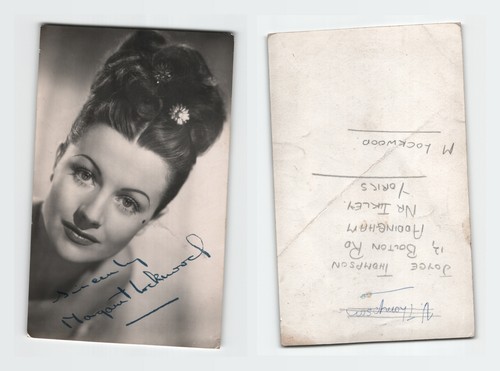 Sincerely
Margaret Lockwood
JOYCE THOMPSON
12, BOLTON RD
ADDINGHAM
NR ILKLEY.
YORKS
M LOCKWOOD